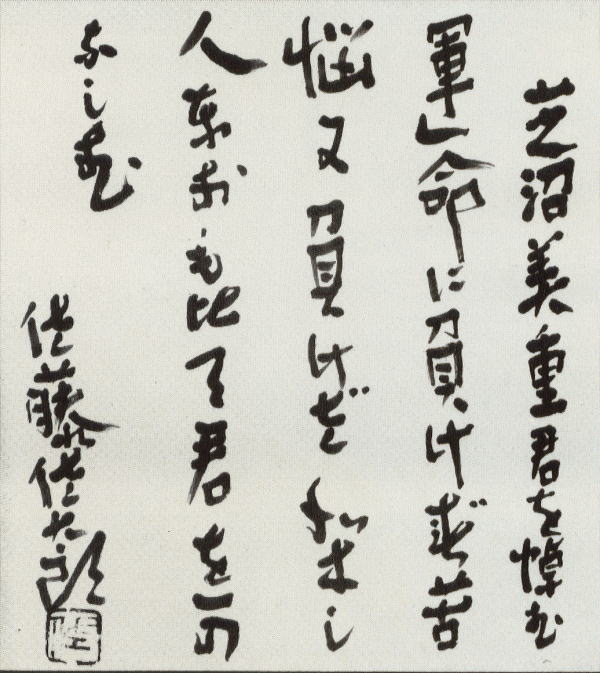 芝沼美重君を悼む
運命に負けず苦
悩に負けざりし
人おもひて君をか
なしむ
佐藤佐太郎